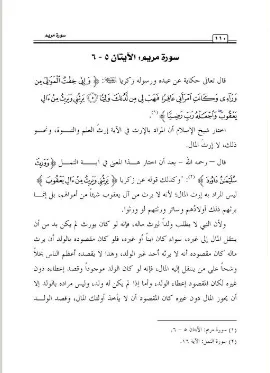 ١١٠
سورة مريم
سورة مريم: الآيتان ٥ - ٦
قال تعالى حكاية عن عبده ورسوله زكريا : ﴿ وَإِنِّي خِفْتُ الْمَوَالِيَ مِن
وَرَاءِي وَكَانَتِ امْرَأَتِي عَاقِرًا فَهَبْ لِي مِن لَّدُنكَ وَلِيًّا ﴿٥﴾ يَرِثُنِي وَيَرِثُ مِنْ ءَالِ
يَعْقُوبَ وَاجْعَلْهُ رَبِّ رَضِيًّا ﴾(١).
اختار شيخ الإسلام أن المراد بالإرث في الآية إرث العلم والنبوة، ونحو
ذلك، لا إرث المال.
قال - رحمه الله - بعد أن اختار هذا المعنى في آية النمل ﴿ وَوَرِثَ
سُلَيْمَانُ دَاوُودَ ﴾(٢): "وكذلك قوله عن زكريا ﴿ يَرِثُنِي وَيَرِثُ مِنْ ءَالِ يَعْقُوبَ ﴾
ليس المراد به إرث المال؛ لأنه لا يرث من آل يعقوب شيئاً من أموالهم، بل إنما
يرثهم ذلك أولادهم وسائر ورثتهم لو ورثوا.
ولأن النبي لا يطلب ولداً ليرث ماله، فإنه لو كان يورث لم يكن بد من أن
ينتقل المال إلى غيره، سواء كان ابناً أو غيره، فلو كان مقصوده بالولد أن يرث
ماله كان مقصوده أنه لا يرثه أحد غير الولد، وهذا لا يقصده أعظم الناس بخلاً
وشحاً على من ينتقل إليه المال، فإنه لو كان الولد موجوداً وقصد إعطاءه دون
غيره لكان المقصود إعطاء الولد، وأما إذا لم يكن له ولد، وليس مراده بالولد إلا
أن يحوز المال دون غيره كان المقصود أن لا يأخذ أولئك المال، وقصد الولد
(١) سورة مريم: الآيتان ٥ - ٦.
(٢) سورة النمل: الآية ١٦.